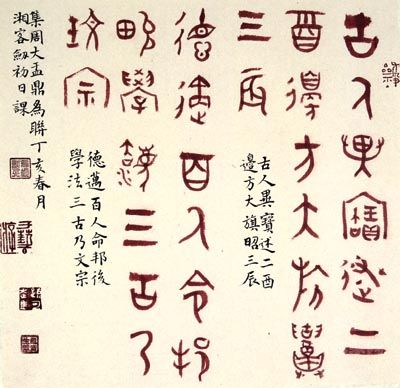 古人異寶述二
酉邊方大旂昭
三辰
古人異寶述二酉
邊方大旗昭三辰
德邁百人命邦
後學法三古乃
文宗
德邁百人命邦後
學法三古乃文宗
集周大盂鼎為聯丁亥春月
湘客劍初日課